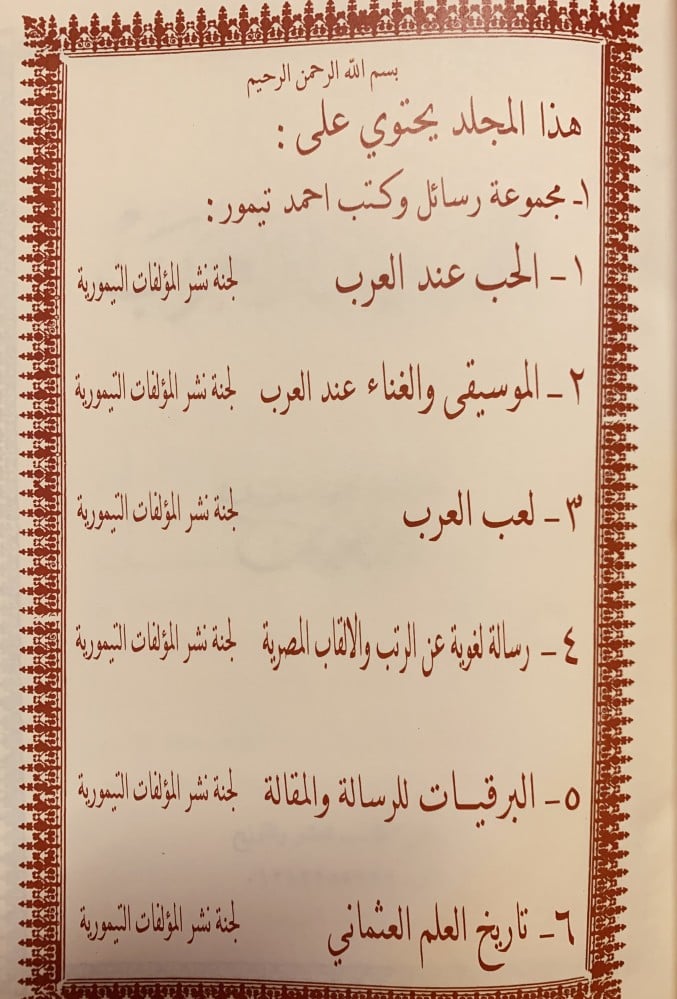 بسم الله الرحمن الرحيم
هذا المجلد يحتوي على :
١ـ مجموعة رسائل وكتب احمد تيمور :
١ـ الحب عند العرب لجنة نشر المؤلفات التيمورية
٢ـ الموسيقى والغناء عند العرب لجنة نشر المؤلفات التيمورية
٣ـ لعب العرب لجنة نشر المؤلفات التيمورية
٤ـ رسالة لغوية عن الرتب والالقاب المصرية لجنة نشر المؤلفات التيمورية
٥ـ البرقيات للرسالة والمقالة لجنة نشر المؤلفات التيمورية
٦ـ تاريخ العلم العثماني لجنة نشر المؤلفات التيمورية